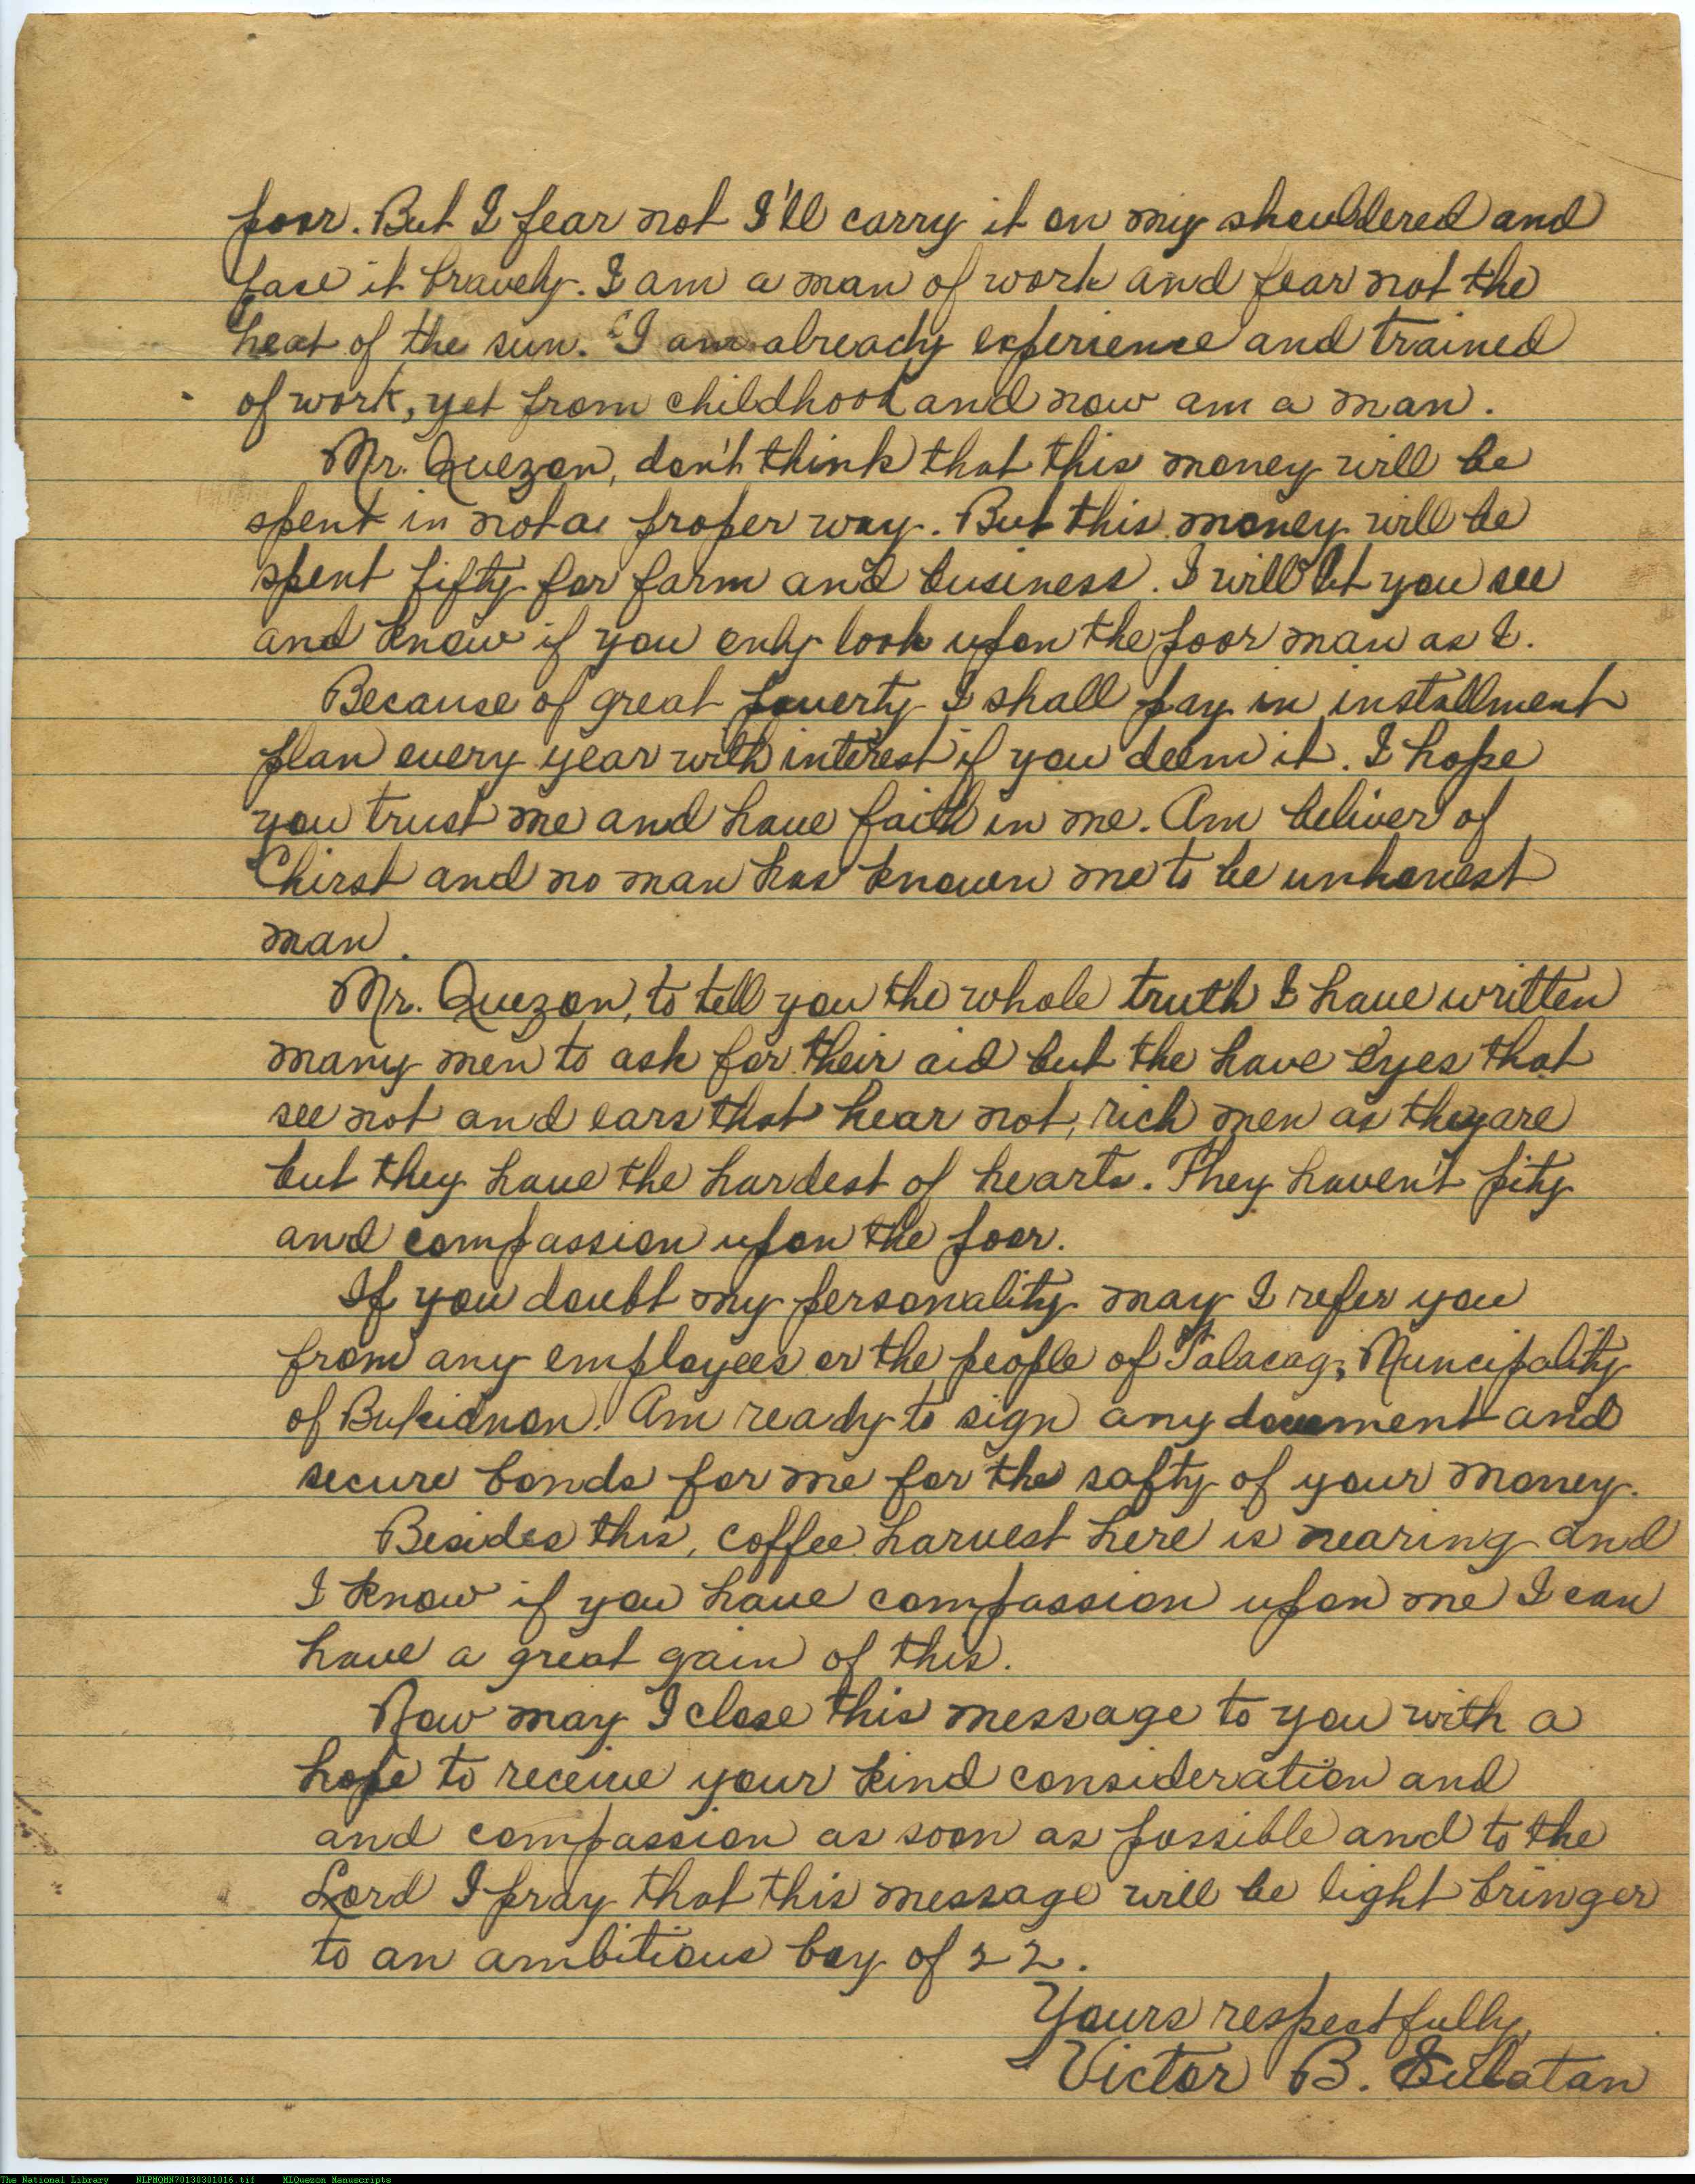 poor. But I fear not I'll carry it on my shouldered and
face it bravely. I am a man of work and fear not the
heat of the sun. I am already experience and trained
of work, yet from childhood and now am a man.
Mr. Quezon, don't think that this money will be
spent in not a proper way. But this money will be
spent fifty for farm and business. I will let you see
and know if you only look upon the poor man as I.
Because of great poverty I shall pay in installment
plan every year with interest if you deem it. I hope
you trust me and have faith in me. Am beliver of
Chirst and no man has known me to be unhonest
man.
Mr. Quezon, to tell you the whole truth I have written
many men to ask for their aid but the have eyes that
see not and ears that hear not, rich men as they are
but they have the hardest of hearts. They haven't pity
and compassion upon the poor.
If you doubt my personality may I refer you
from any employees or the people of Talacag, Muncipality
of Bukidnon. Am ready to sign any document and
secure bonds for me for the safty of your money.
Besides this, coffee harvest here is nearing and
I know if you have compassion upon me I can
have a great gain of this.
Now may I close this message to you with a
hope to receive your kind consideration and
and compassion as soon as possible and to the
Lord I pray that this message will be light bringer
to an ambitious boy of 22.
Yours respectfully,
Victor B. Sulatan
The National Library NLPMQMN70130301016.tif MLQuezon Manuscripts